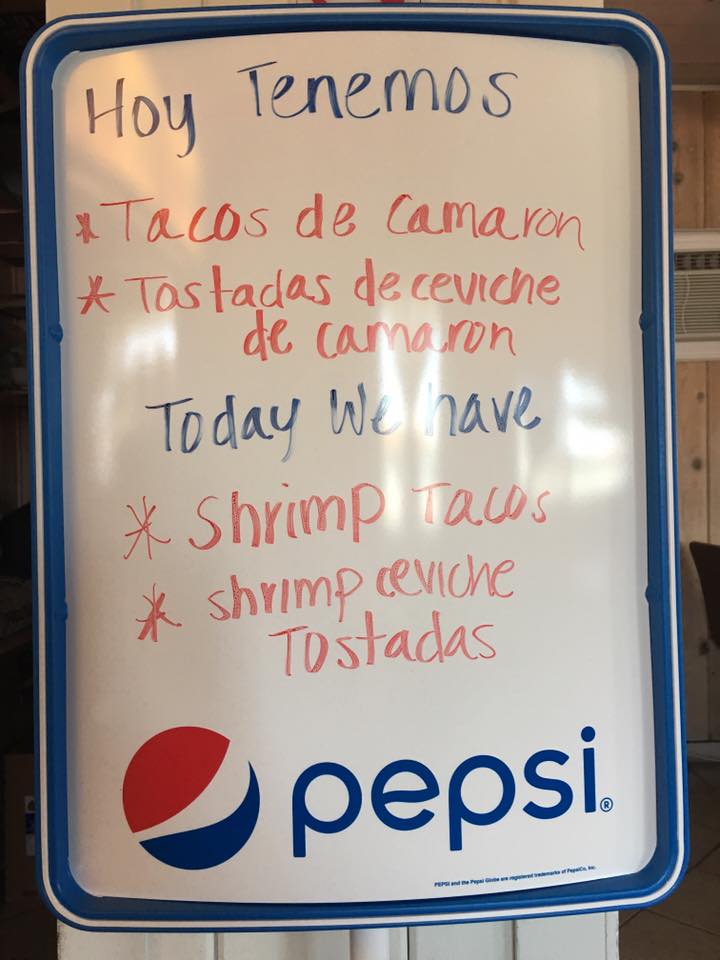 Hoy Tenemos
* Tacos de Camaron
* Tostadas de ceviche
de camaron
Today We have
* Shrimp Tacos
* shrimp ceviche
Tostadas
pepsi®
PEPSI and the Pepsi Globe are registered trademarks of PepsiCo, Inc.